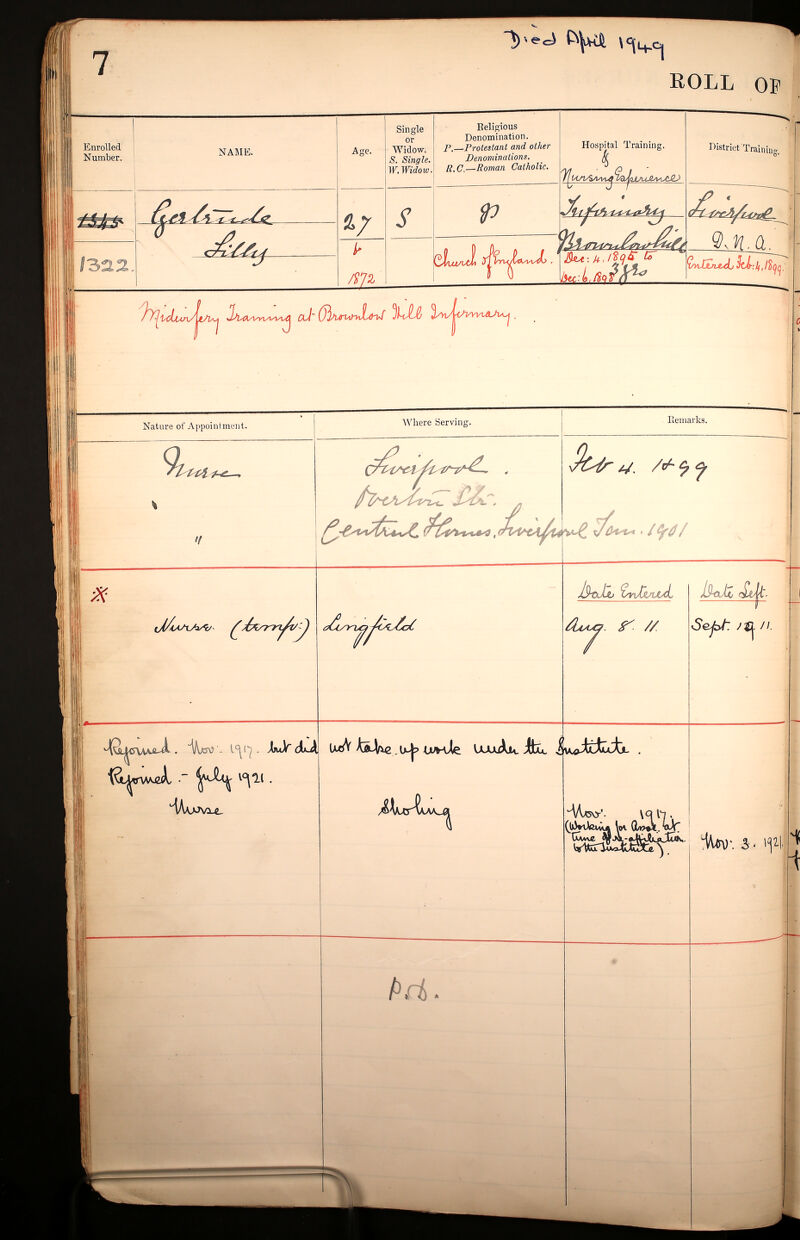 Died April 1949
7
ROLL OF
Enrolled Number.
NAME.
Age.
Single or Widow. S. Single. W. Widow.
Religious Denomination. P.—Protestant and other Denominations. R.C.—Roman Catholic.
Hospital Training.
& Nursing Experience
District Training.
1322.
Gertrude
Lilly
27
b
1872
S
P
Church of England.
Infirmary
Brownlow Hill
Dec: 4. 1895 to
Dec: 6. 1898 3 yrs
Liverpool
D.N.A.
Entered Feb: 4. 1899.
Midwifery Training at Brownlow Hill Infirmary.
Nature of Appointment.
Where Serving.
Remarks.
Nurse
Liverpool.
Feb 4. 1899
Overton Str.
"
Central Homes, Liverpool Jan. 1901
Date Entered
Date Left.
Nurse (temp:)
Lingfield
Aug. 8. 11
Sept. 11.
Rejoined. Nov: 1917. but did not take up work under the Institute.
Rejoined :- July 1921.
Nurse
Sholing
Nov: 1917.
(Working for Assoc. at
time of re-affiliation
to the Institute).
Nov: 3. 1921.